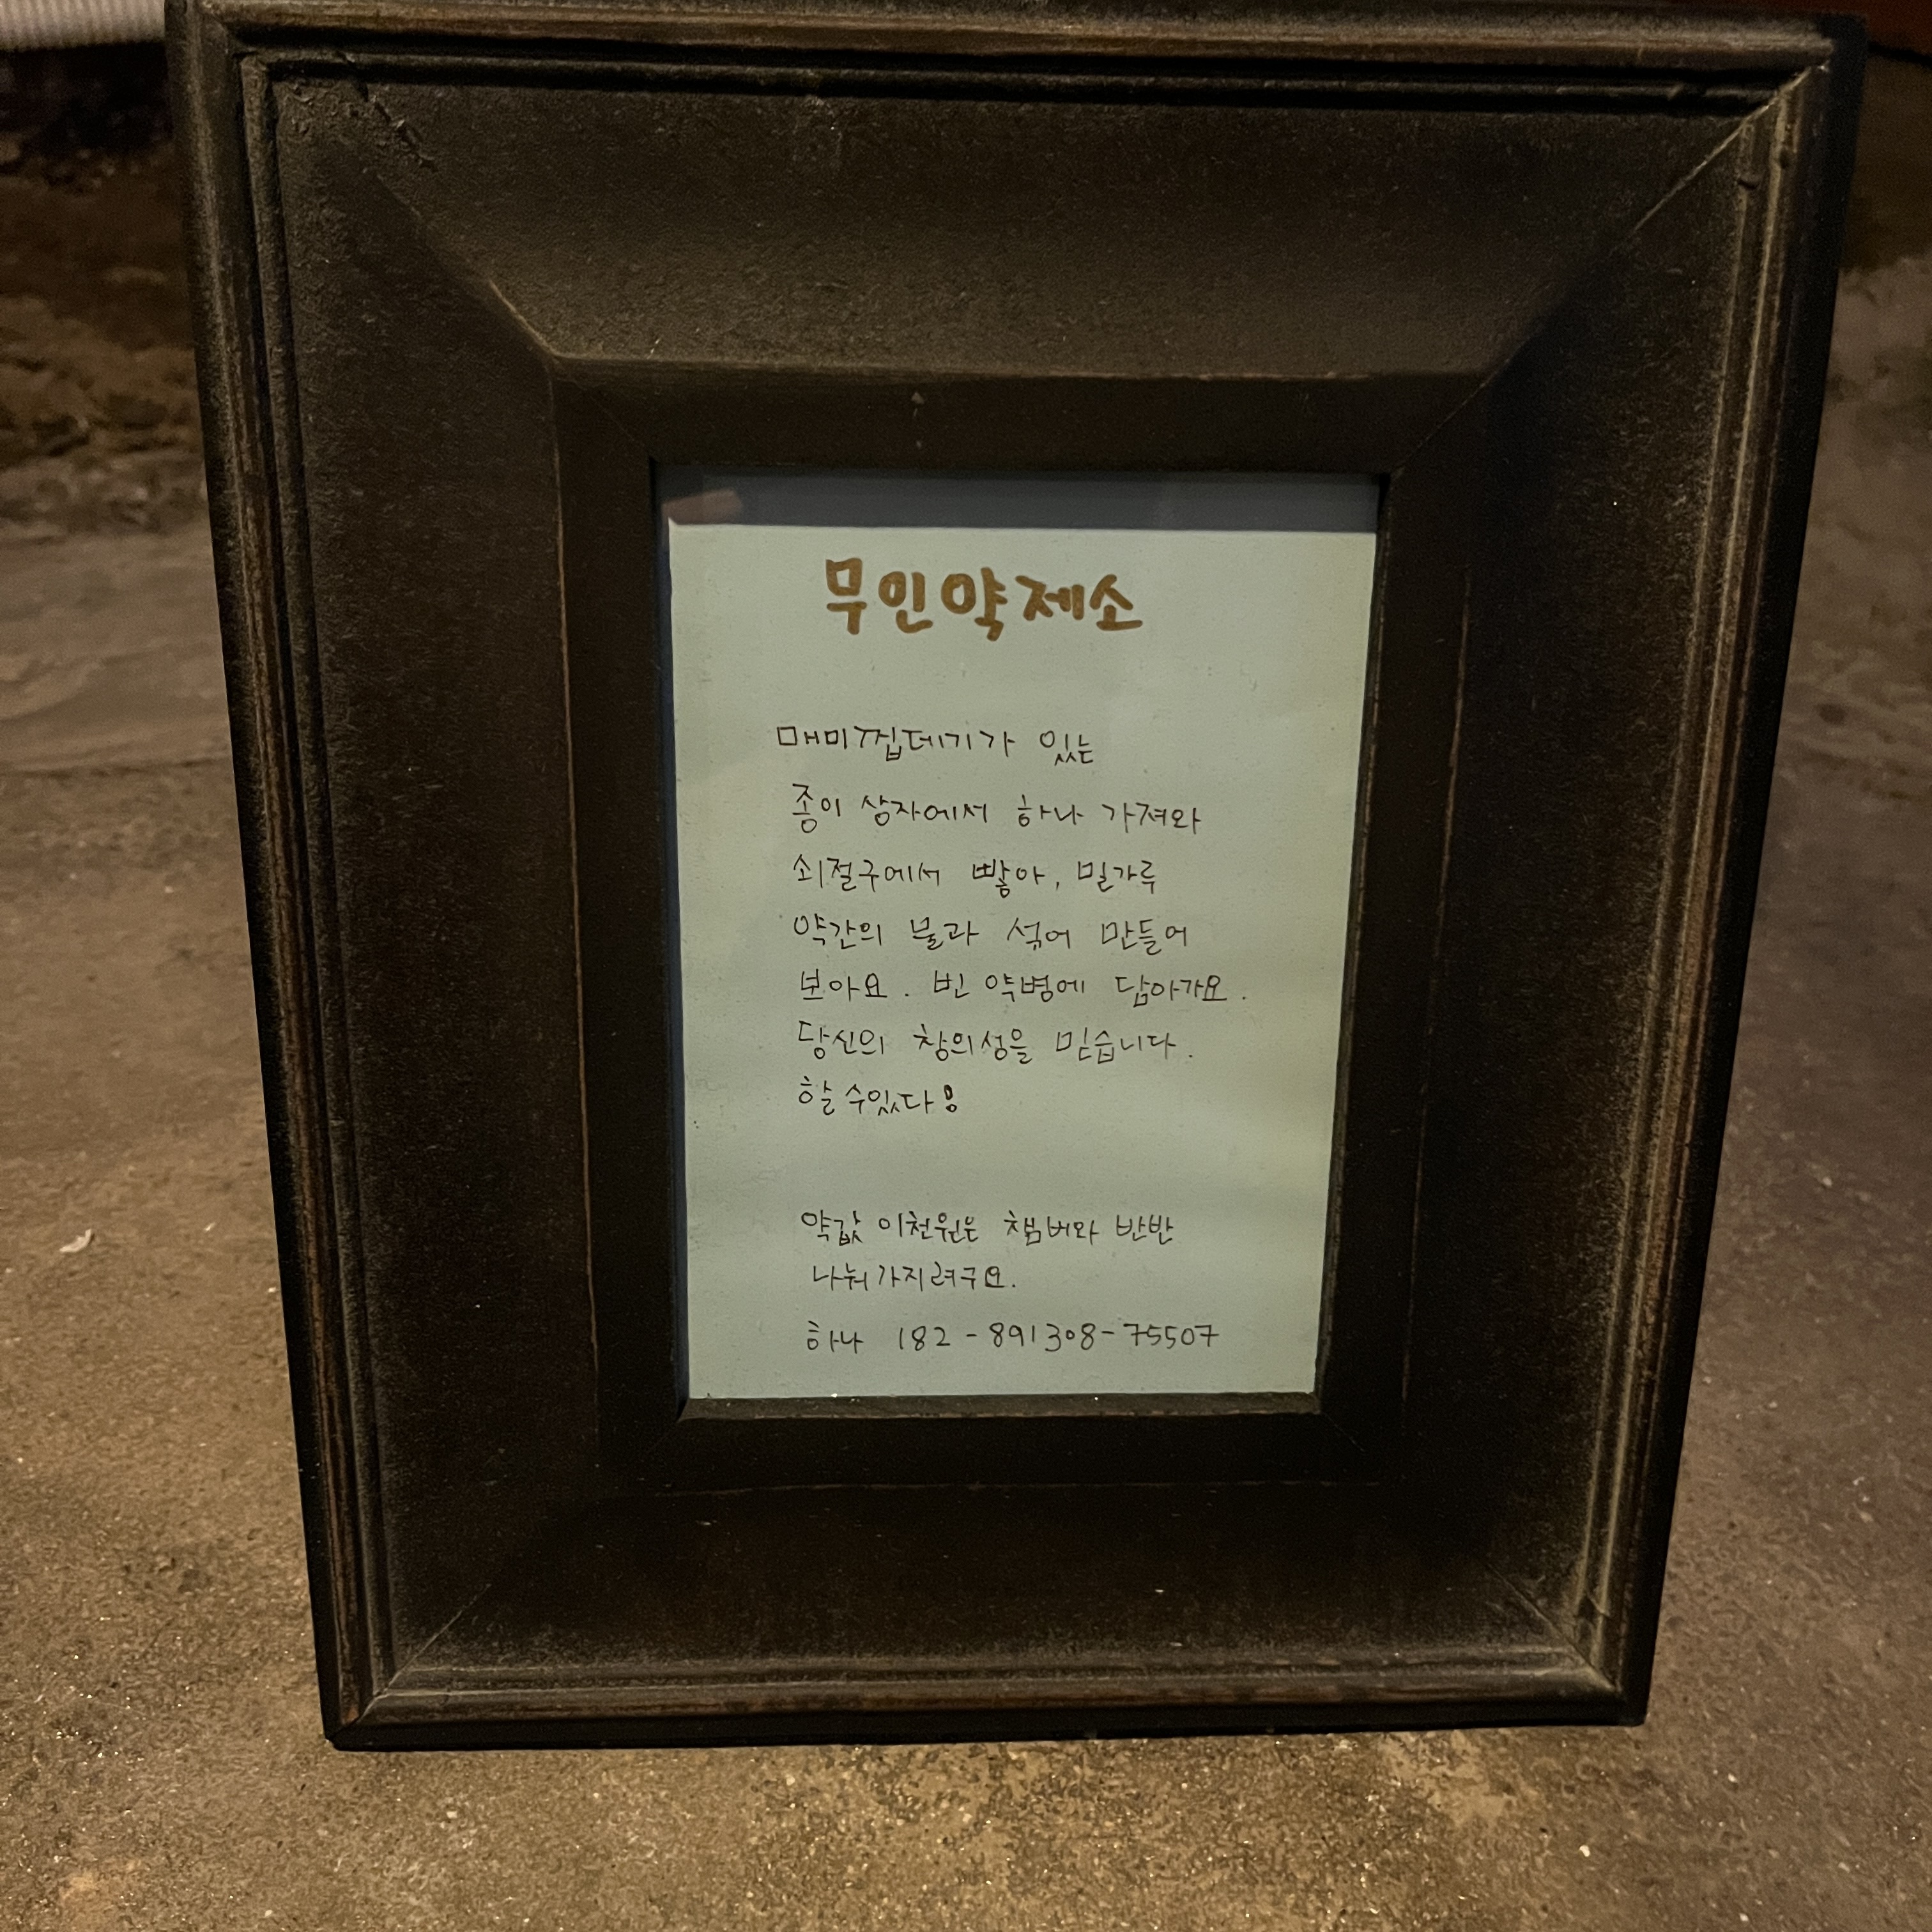 무인약제소
매미껍데기가 있는
종이 상자에서 하나 가져와
쇠절구에서 빻아, 밀가루
약간의 물과 섞어 만들어
보아요. 빈 약병에 담아가요.
당신의 창의성을 믿습니다.
할 수있다!
약값 이천원은 챔버와 반반
나눠가지려구요.
하나 182-891308-75507